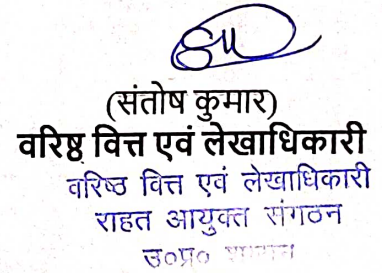 (संतोष कुमार)
वरिष्ठ वित्त एवं लेखाधिकारी
वरिष्ठ वित्त एवं लेखाधिकारी
राहत आयुक्त संगठन
उ०प्र०